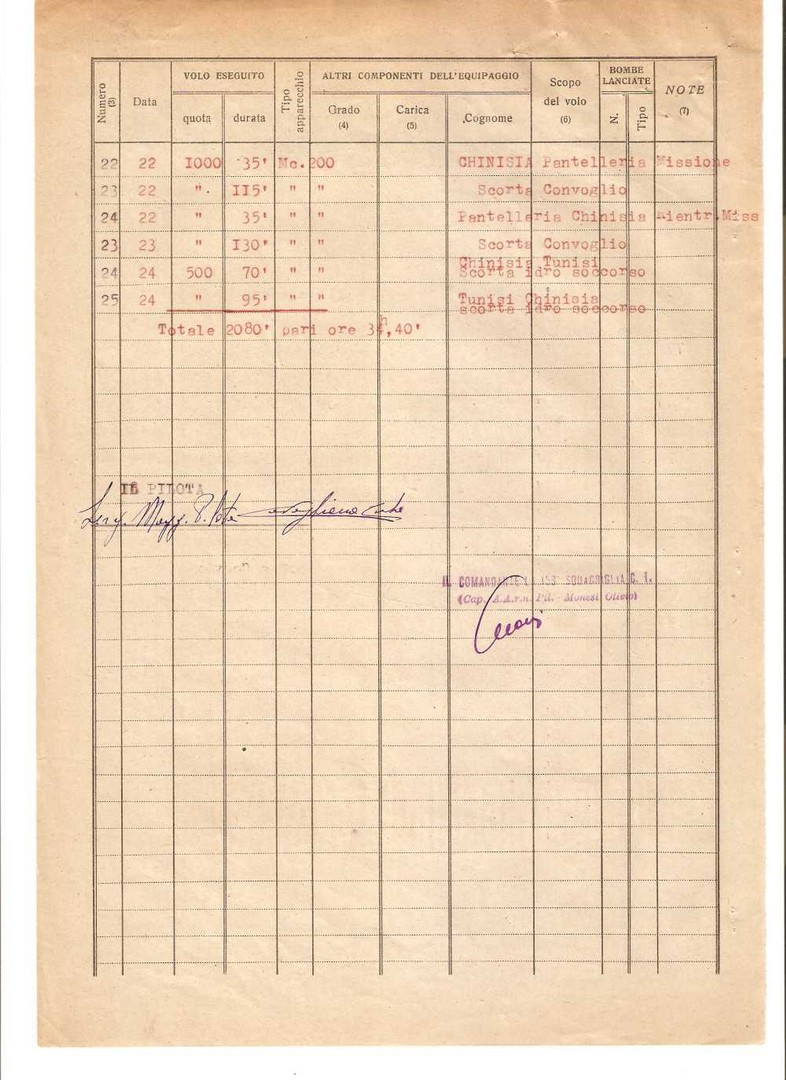 Numero (3) Data VOLO ESEGUITO quota durata Tipo apparecchio ALTRI COMPONENTI DELL'EQUIPAGGIO Grado (4) Carica (5) Cognome Scopo del volo (6) BOMBE LANCIATE N. Tipo NOTE (7)
22 22 1000 35' Mc.200 CHINISIA Pantelleria Missione
23 22 " 115' " " Scorta Convoglio
24 22 " 35' " " Pantelleria Chinisia Rientr.Miss
23 23 " 130' " " Scorta Convoglio
Chinisia Tunisi
24 24 500 70' " " Scorta idro soccorso
25 24 " 95' " " Tunisi Chinisia
scorta idro soccorso
Totale 2080' pari ore 34h,40'
IL PILOTA
Serg. Magg. Pilota
IL COMANDANTE LA SQUADRIGLIA C. T.
(Cap. A.A.r.n. Pil. - Monesi Olivio)